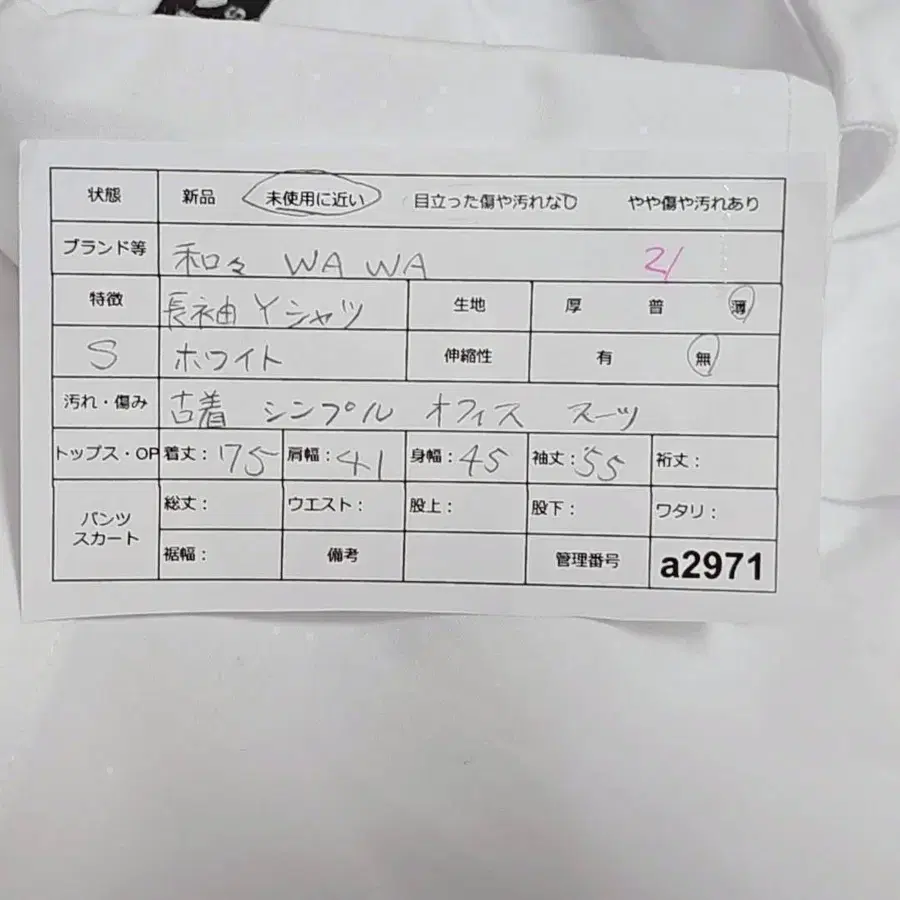 状態 新品 未使用に近い 目立った傷や汚れなし やや傷や汚れあり
ブランド等 和々 WA WA 21
特徴 長袖Yシャツ 生地 厚 普 薄
S ホワイト 伸縮性 有 無
汚れ・傷み 古着 シンプル オフィス スーツ
トップス・OP 着丈:75 肩幅:41 身幅:45 袖丈:55 裄丈:
パンツ 総丈: ウエスト: 股上: 股下: ワタリ:
スカート
裾幅: 備考 管理番号 a2971